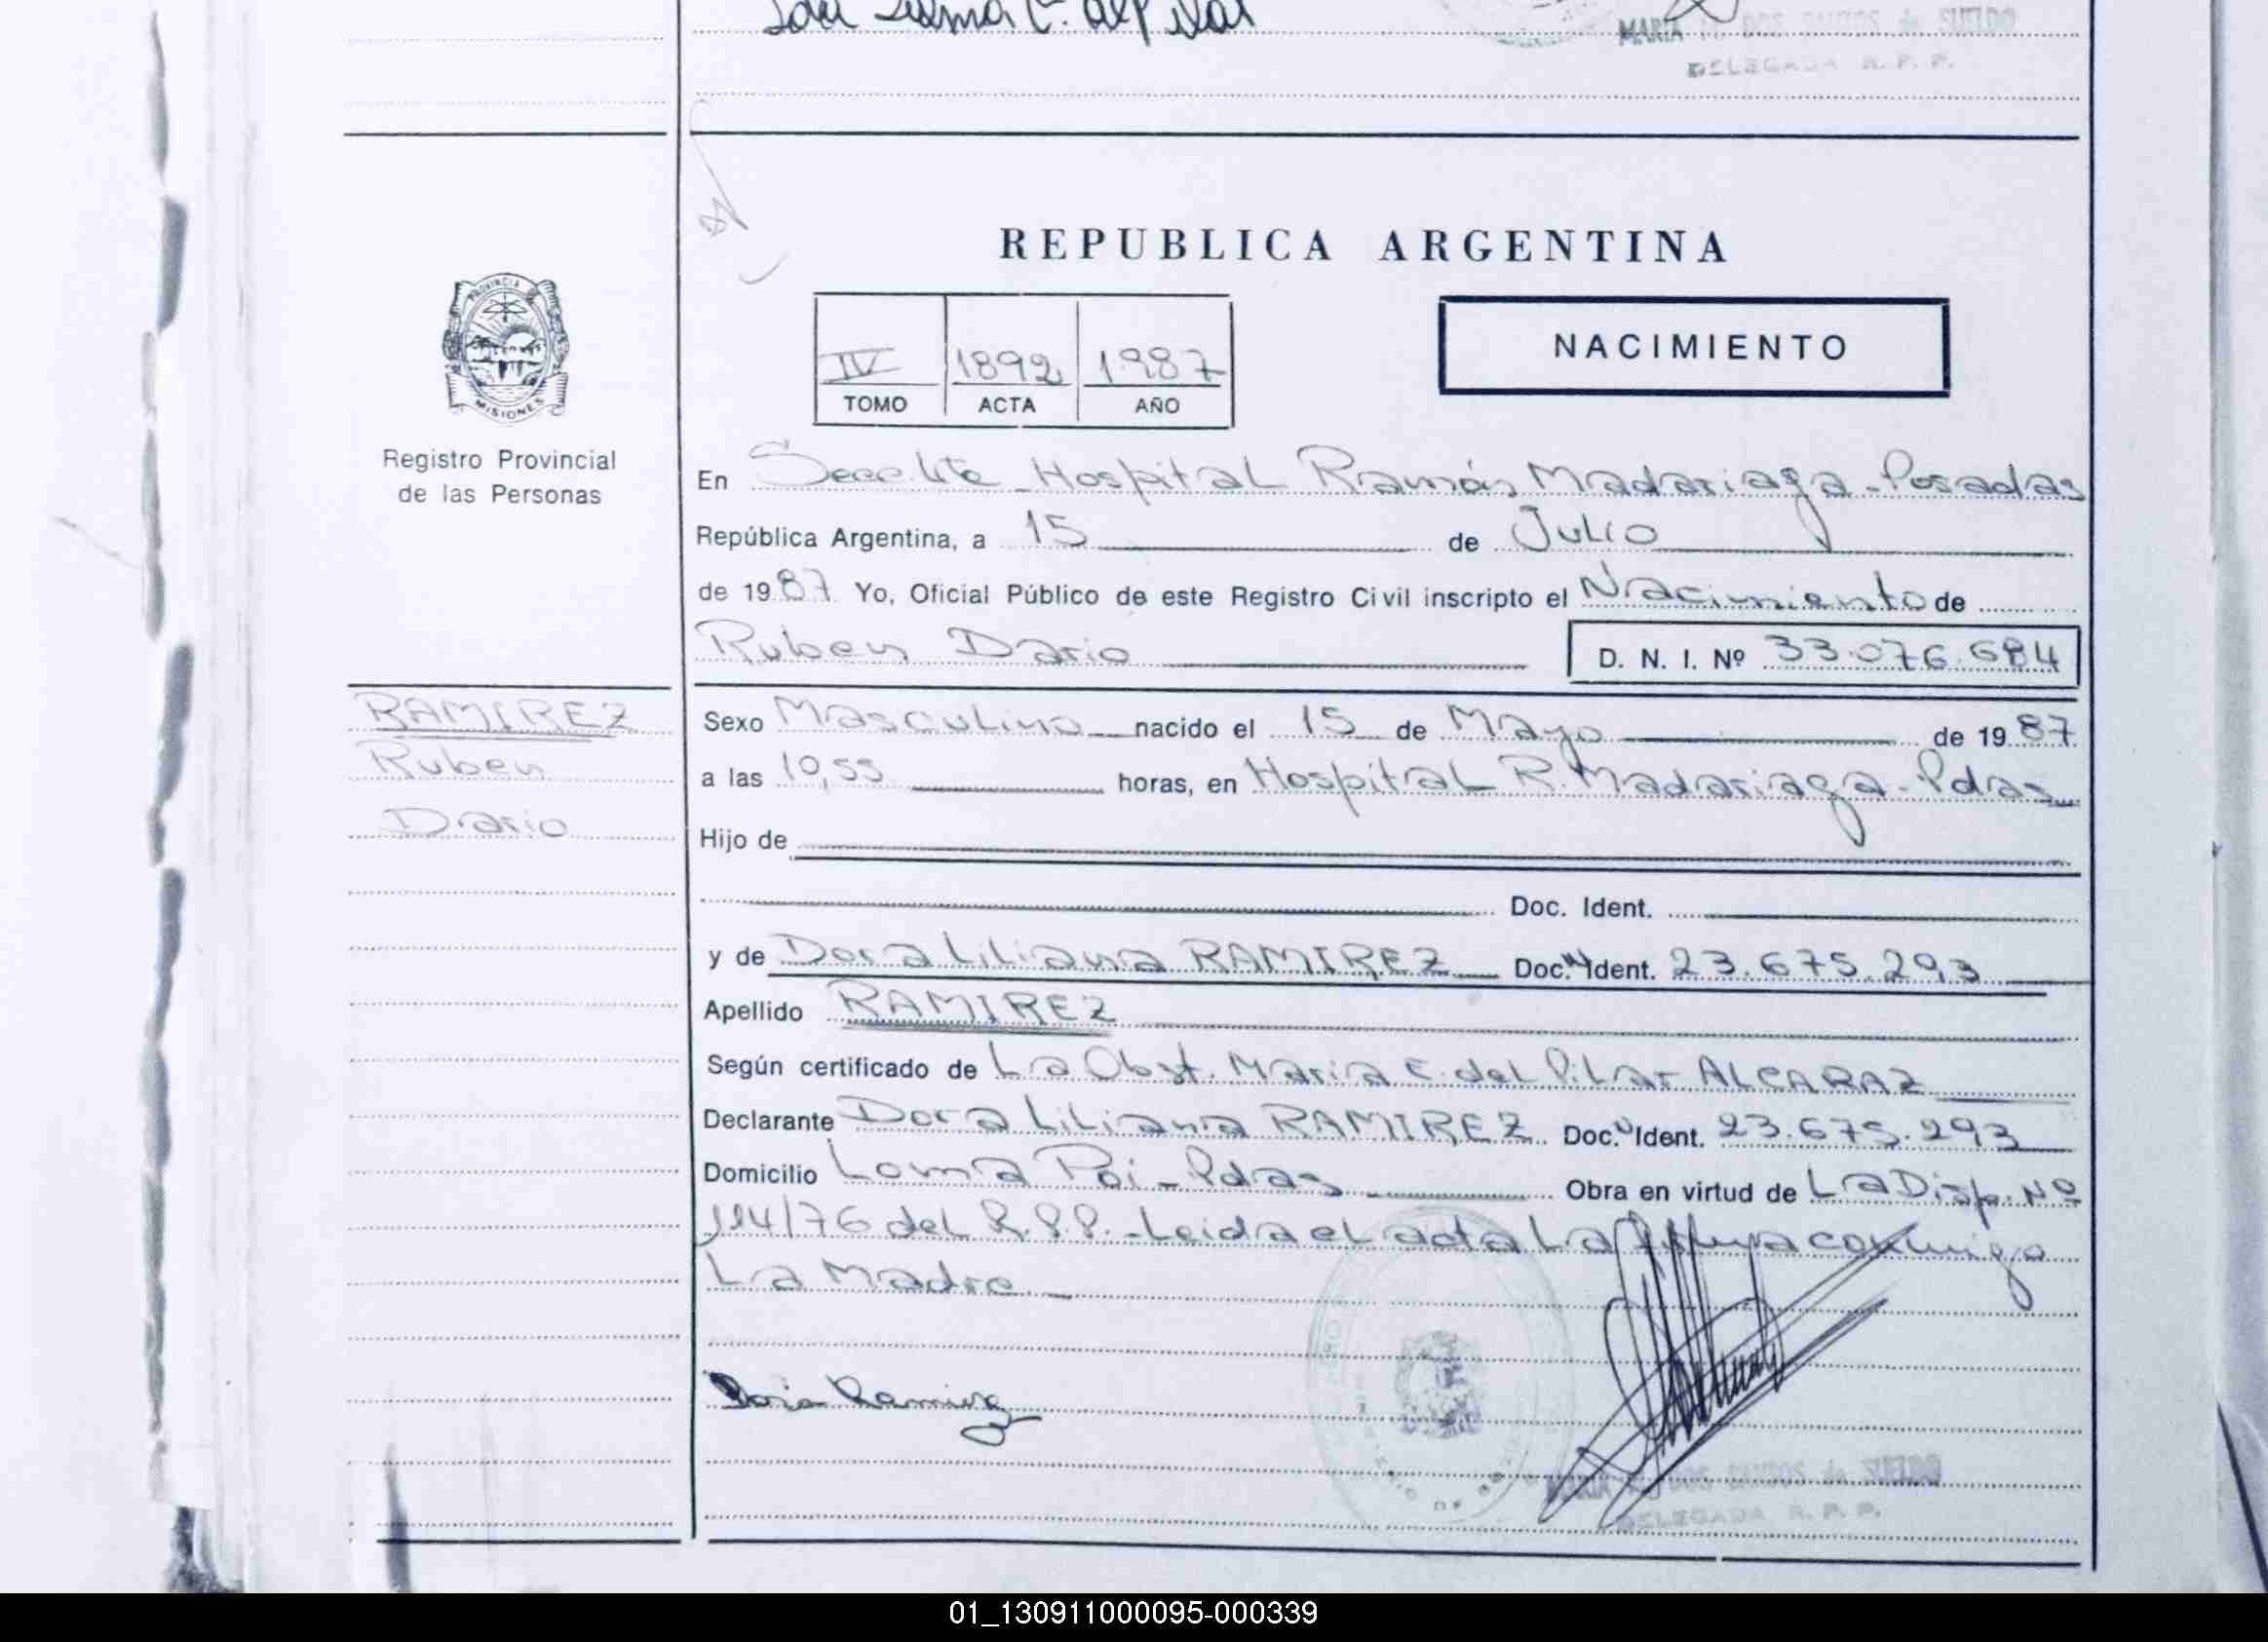 MARIA DOS SANTOS de SUELDO
DELEGADA R. P. P.
REPUBLICA ARGENTINA
PROVINCIA DE
MISIONES
Registro Provincial
de las Personas
IV 1892 1987
TOMO ACTA AÑO
NACIMIENTO
En Hospital Ramón Madariaga - Posadas
República Argentina, a 15 de Julio
de 1987 Yo, Oficial Público de este Registro Civil inscripto el Nacimiento de
Ruben Dario D. N. I. Nº 33.076.684
RAMIREZ
Ruben
Dario
Sexo Masculino nacido el 15 de Mayo de 1987
a las 10,55 horas, en Hospital R. Madariaga - Pdas
Hijo de
Doc. Ident.
y de Dora Liliana RAMIREZ Doc. Ident. 23.675.293
Apellido RAMIREZ
Según certificado de La Obst. Maria E. del Pilar ALCARAZ
Declarante Dora Liliana RAMIREZ Doc. Ident. 23.675.293
Domicilio Loma Poi - Pdas Obra en virtud de La Disp. Nº
114/76 del R.P.P. - Leida el acta La conmigo
La Madre. -
Ramirez
DOS SANTOS de SUELDO
DELEGADA R. P. P.
01_130911000095-000339